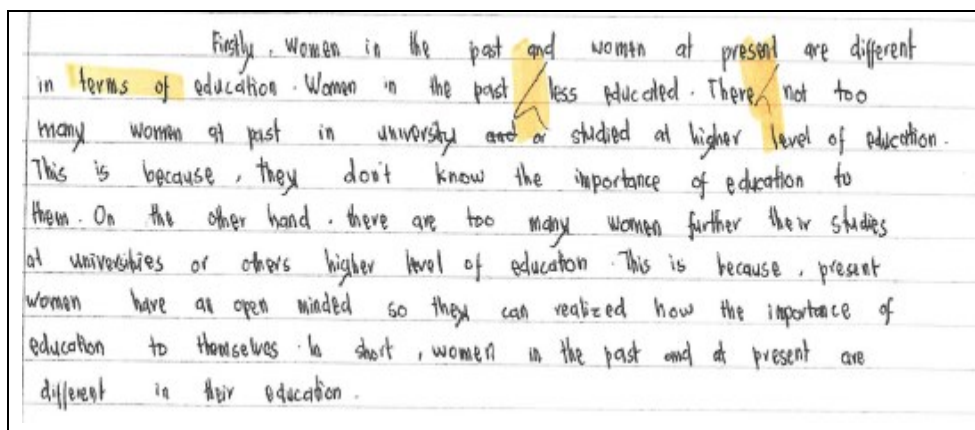 Firstly, women in the past and women at present are different
in terms of education. Women in the past less educated. There not too
many women at past in university and or studied at higher level of education.
This is because, they don't know the importance of education to
them. On the other hand. there are too many women further their studies
at universities or others higher level of education. This is because, present
women have an open minded so they can realized how the importance of
education to themselves. In short, women in the past and at present are
different in their education.